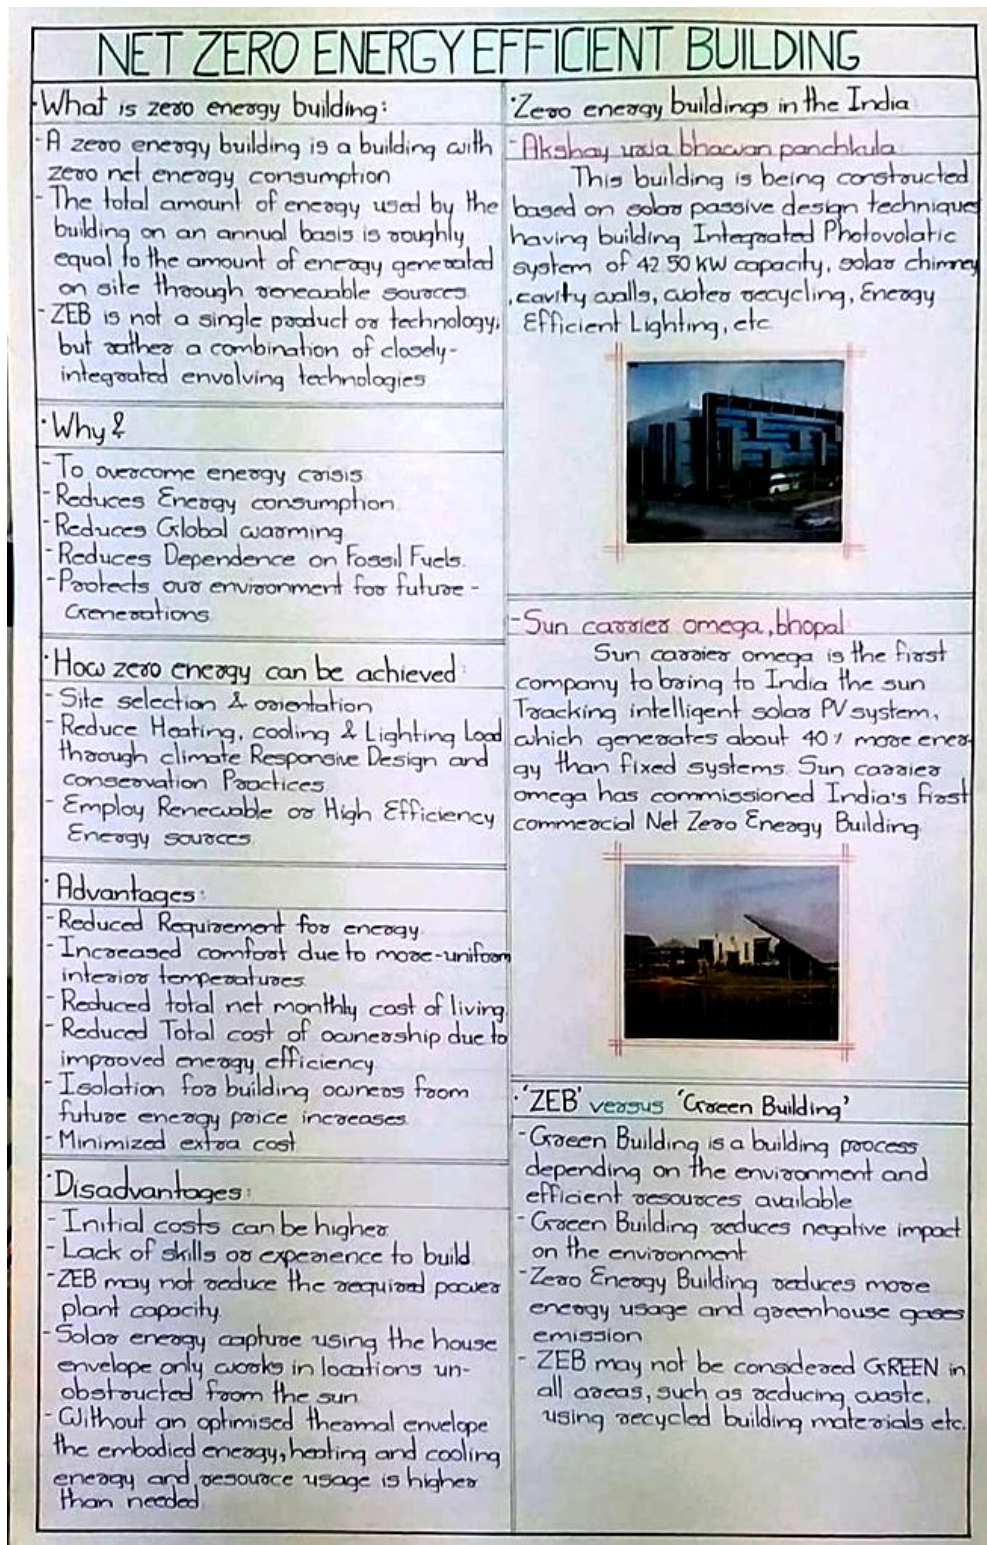 NET ZERO ENERGY EFFICIENT BUILDING
·What is zero energy building:
-A zero energy building is a building with
zero net energy consumption
- The total amount of energy used by the
building on an annual basis is roughly
equal to the amount of energy generated
on site through renewable sources.
- ZEB is not a single product or technology,
but rather a combination of closely-
integrated envolving technologies
·Why?
-To overcome energy crisis.
-Reduces Energy consumption.
-Reduces Global warming
-Reduces Dependence on Fossil Fuels.
-Protects our environment for future -
Generations.
·How zero energy can be achieved:
- Site selection & orientation
- Reduce Heating, cooling & Lighting Load
through climate Responsive Design and
conservation Practices.
- Employ Renewable or High Efficiency
Energy sources.
·Advantages:
-Reduced Requirement for energy.
-Increased comfort due to more-uniform
interior temperatures.
-Reduced total net monthly cost of living.
-Reduced Total cost of ownership due to
improved energy efficiency
-Isolation for building owners from
future energy price increases.
-Minimized extra cost.
·Disadvantages:
- Initial costs can be higher.
- Lack of skills or experience to build.
-ZEB may not reduce the required power
plant capacity.
-Solar energy capture using the house
envelope only works in locations un-
obstructed from the sun.
-Without an optimised thermal envelope
the embodied energy, heating and cooling
energy and resource usage is higher
than needed.
·Zero energy buildings in the India
-Akshay urja bhawan panchkula.
This building is being constructed
based on solar passive design technique
having building Integrated Photovolatic
system of 42.50 KW capacity, solar chimney
,cavity walls, water recycling, Energy
Efficient Lighting, etc.
-Sun carrier omega, bhopal.
Sun carrier omega is the first
company to bring to India the sun
Tracking intelligent solar PV system,
which generates about 40% more ener-
gy than fixed systems. Sun carrier
omega has commissioned India's first
commercial Net Zero Energy Building.
·'ZEB' versus 'Green Building'
-Green Building is a building process
depending on the environment and
efficient resources available
-Green Building reduces negative impact
on the environment.
-Zero Energy Building reduces more
energy usage and greenhouse gases
emission
- ZEB may not be considered GREEN in
all areas, such as reducing waste,
using recycled building materials etc.